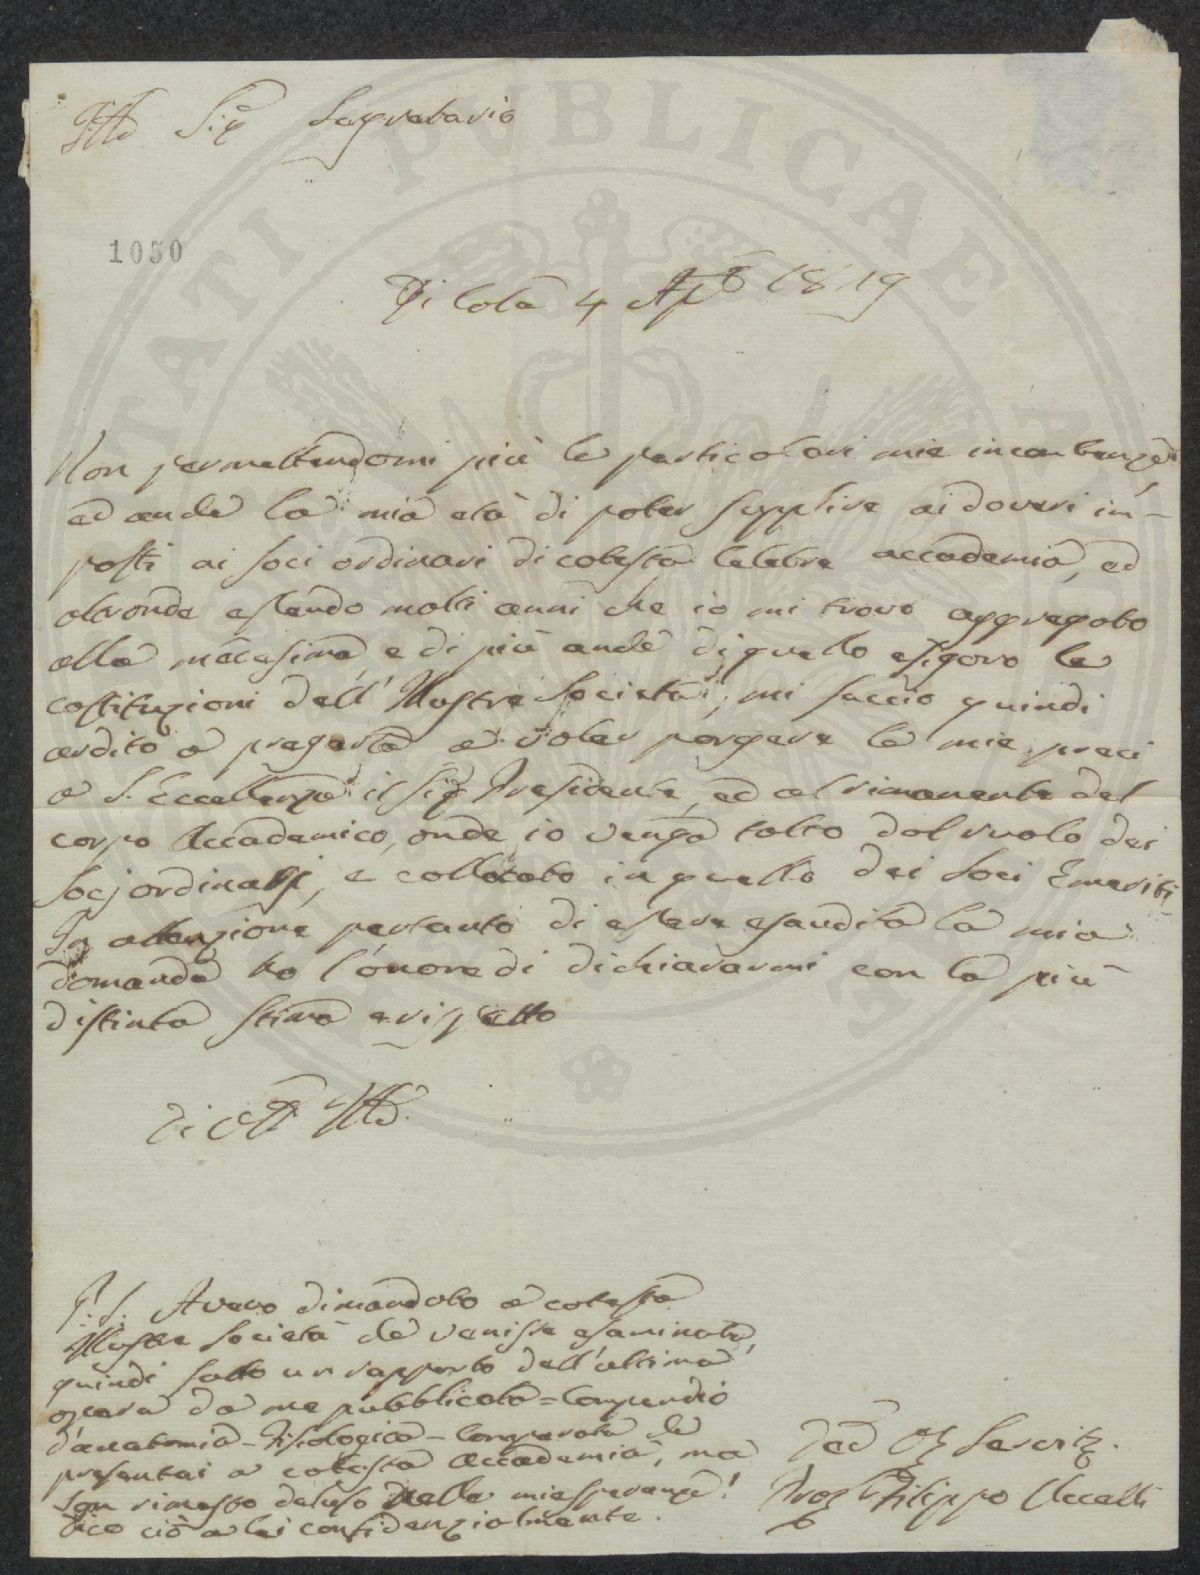 Illmo Sig.e Segretario
1050
Di Colta 4 Ap.le 1819
Non permettendomi più le particolari mie incombenze
ed anche la mia età di poter supplire ai doveri im-
posti ai soci ordinari di cotesta Celebre accademia, ed
altronde essendo molti anni che io mi trovo aggregato
alla medesima, e di più anche di quello esigono le
costituzioni dell'Illustre Società; mi faccio quindi
ardito a pregarla a voler porgere le mie preci
a S. Eccellenza il Sig.e Presidente, ed al rimanente del
corpo Accademico, onde io venga tolto dal ruolo dei
Socj ordinarj, e collocato in quello dei Soci Emeriti
In attenzione pertanto di essere esaudita la mia
domanda ho l'onore di dichiararmi con la più
distinta stima e rispetto
Di VS Illma
P.S. Avevo dimandato a cotesta
Illustre Società che venisse esaminata,
quindi fatto un rapporto dell'ultima
opera da me pubblicata = Compendio
d'anatomia-Fisiologico-Comparata che
presentai a cotesta accademia, ma
son rimasto deluso nelle mie speranze!
dico ciò a lei confidenzialmente.
Dev Ob Servit.e
Prof.e Filippo Uccelli
PUBLICAE